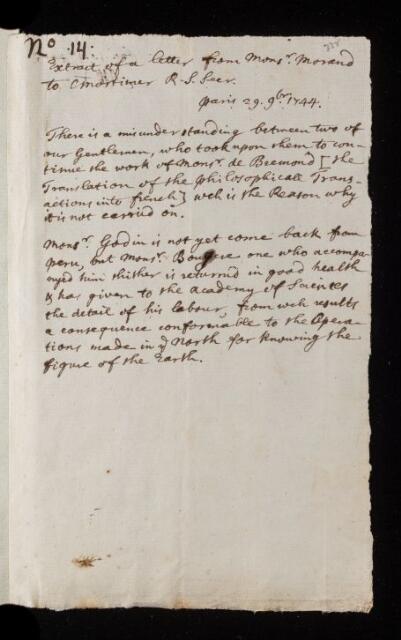 No. 14.
Extract of a letter from Monsr. Morand
to C Mortimer R. S. Secr.
Paris 29. 9br. 1744.
There is a misunderstanding between two of
our Gentlemen, who took upon them to con-
tinue the work of Monsr. de Bremond [the
Translation of the Philosophicall Trans-
actions into french] wch is the Reason why
it is not carried on.
Monsr. Godin is not yet come back from
Peru, but Monsr. Bouguer one who accompa-
nyed him thither is returnd in good health
& has given to the Academy of Sciences
the detail of his labour, from wch results
a consequence conformable to the Opera-
tions made in ye North for knowing the
figure of the Earth.